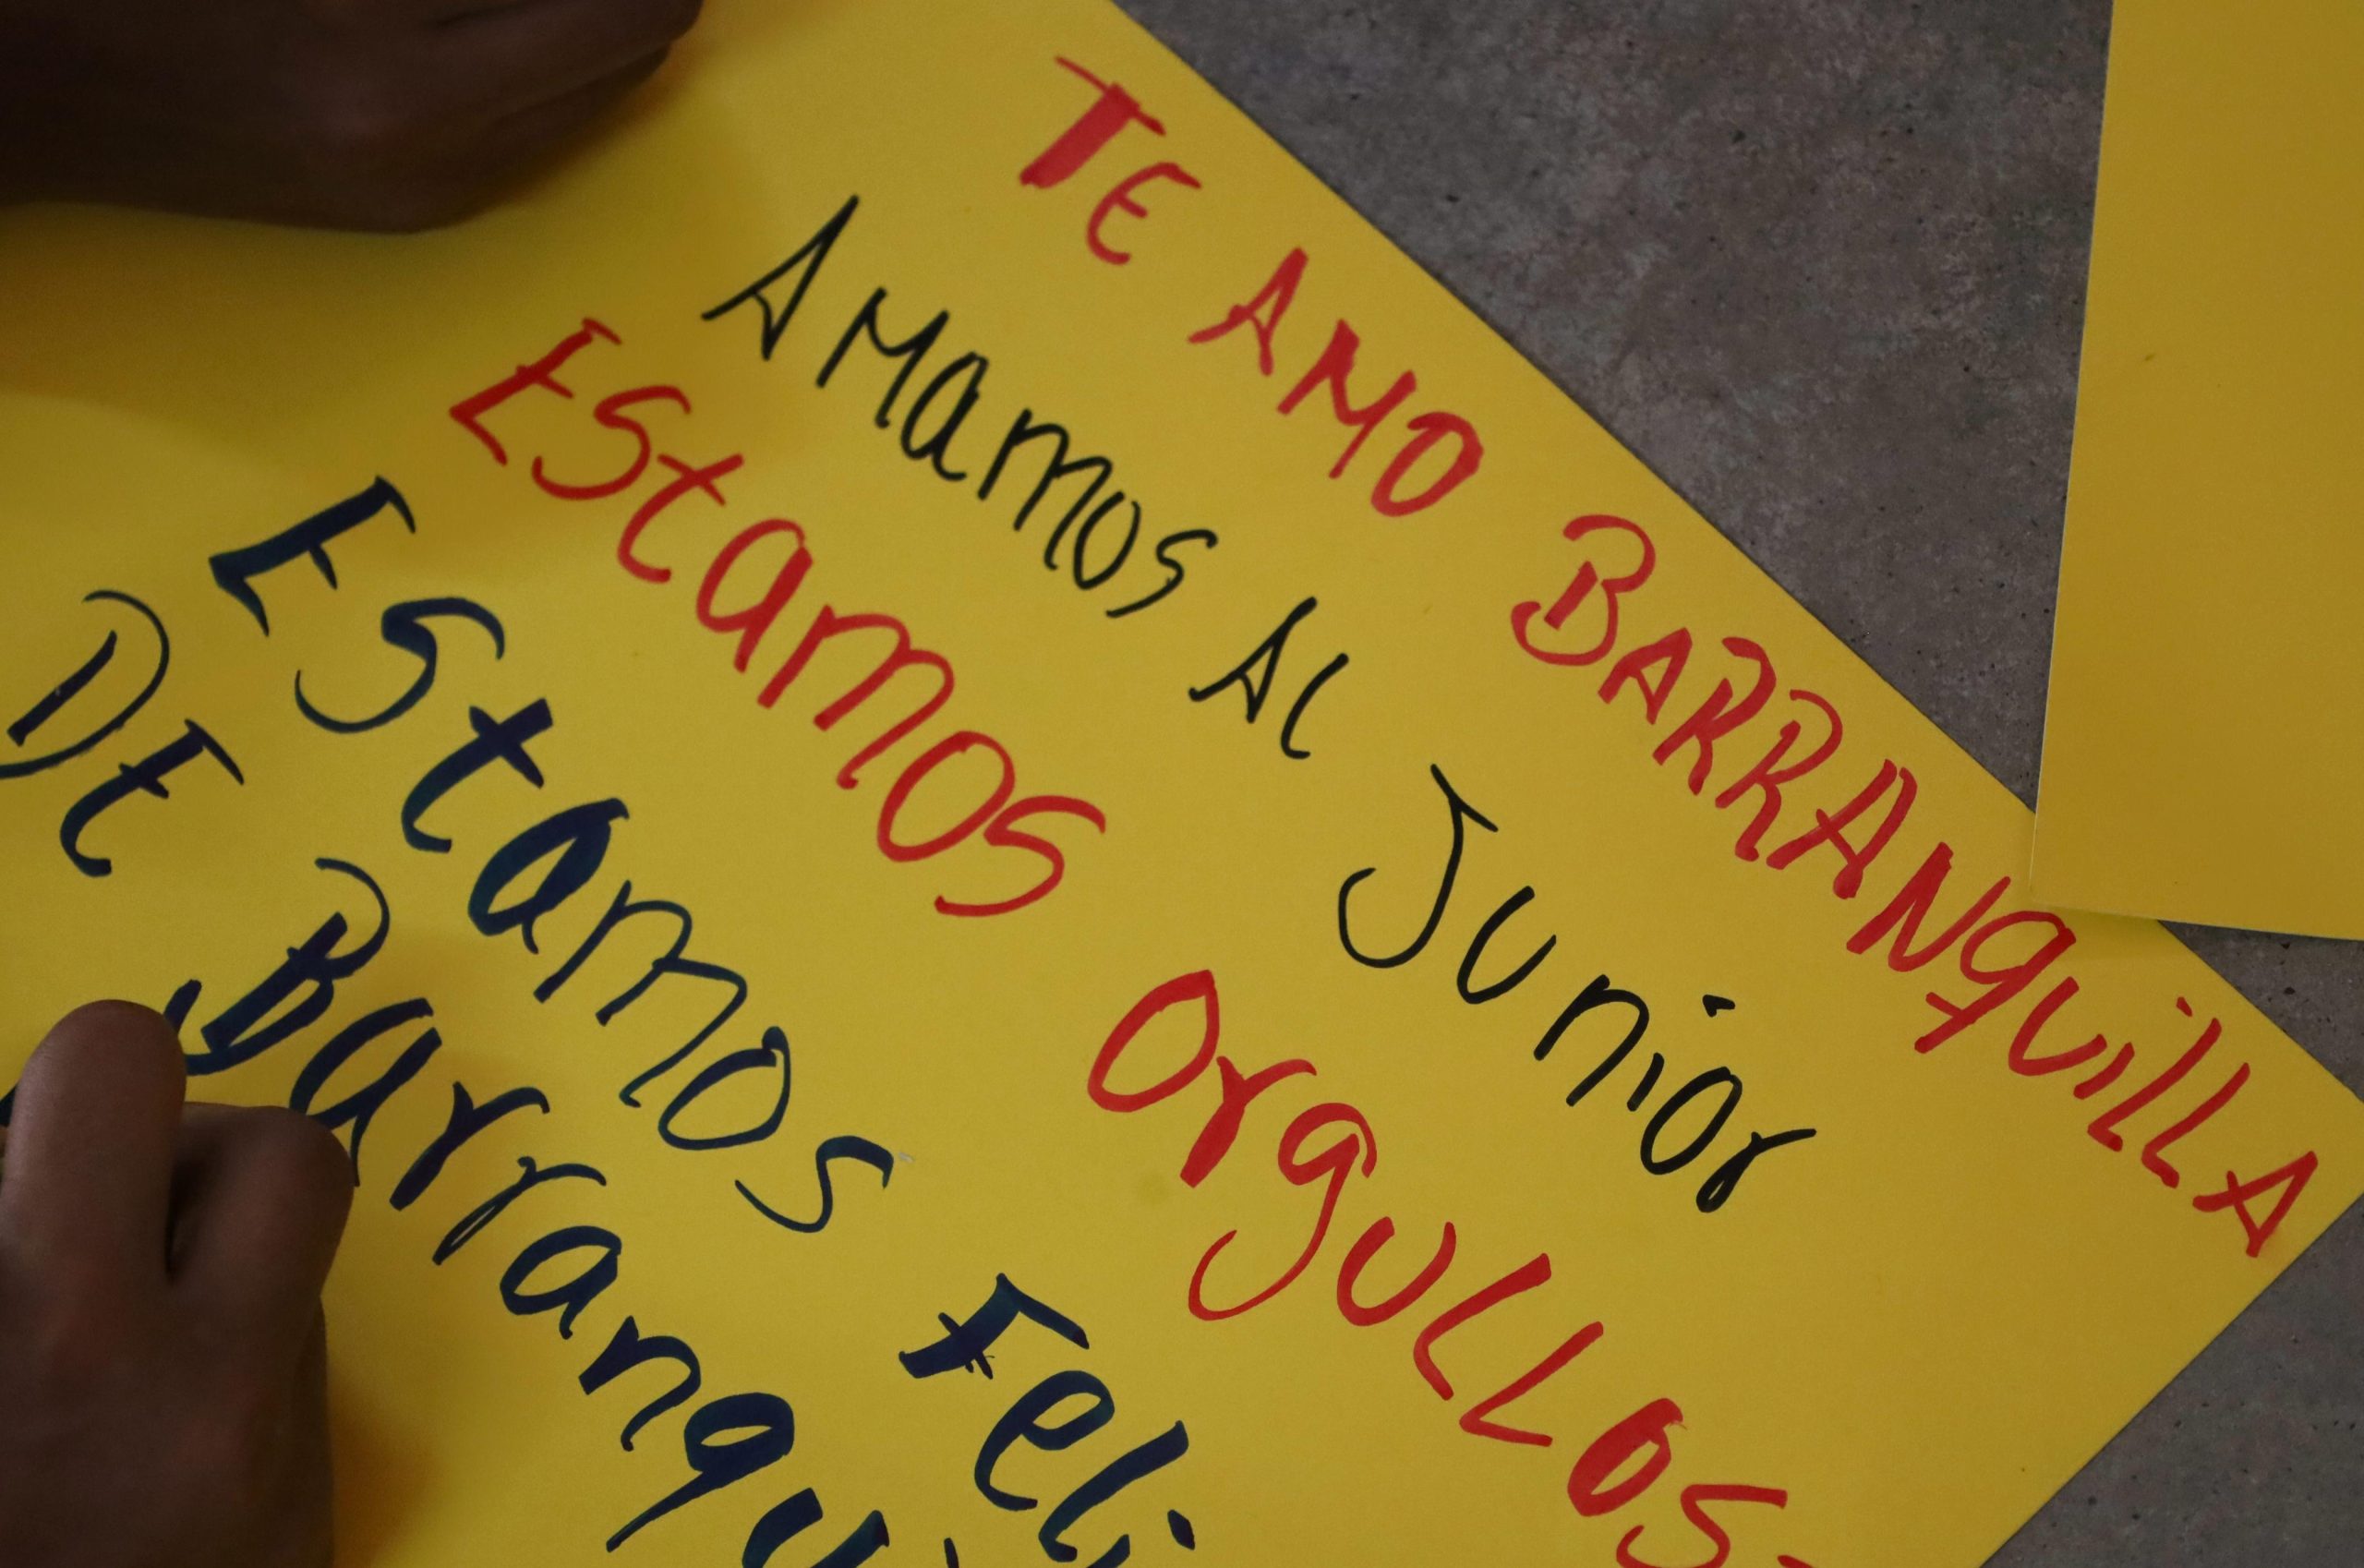 TE AMO BARRANquiLLA
AMamos Al Junior
EStamos OrguLLOS
EStamos Feli
DE Barranqui